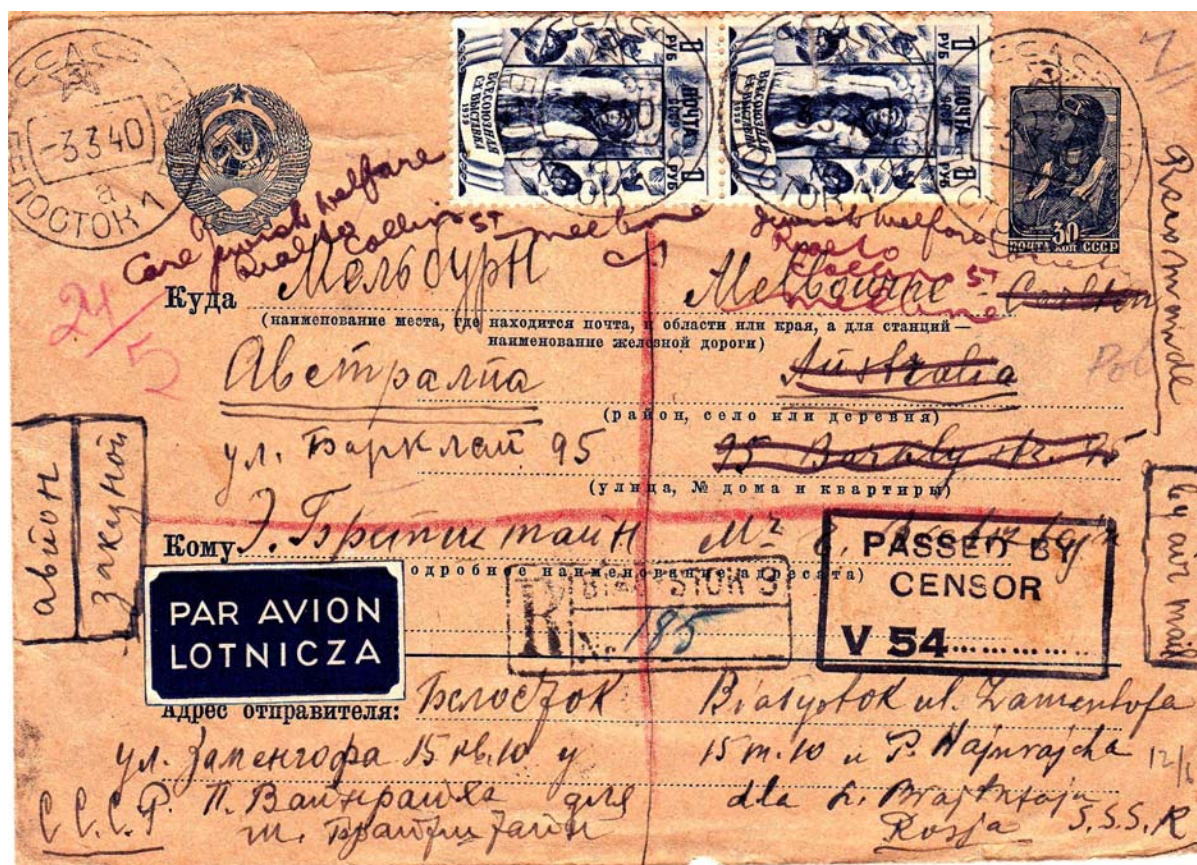 СССР
БЕЛОСТОК 1
-3.3.40
а
1 РУБ ПОЧТА СССР 1 РУБ
ВСЕСОЮЗНАЯ С.Х. ВЫСТАВКА 1939
1 РУБ ПОЧТА СССР 1 РУБ
ВСЕСОЮЗНАЯ С.Х. ВЫСТАВКА 1939
30
ПОЧТА КОП СССР
Care Jewish Welfare
Rialto Collins ST
Melbourne
C1
Jewish Welfare
Society
Rialto
Collins ST
Melbourne
24/5
Куда Мельбурн Melbourne Carlton
(наименование места, где находится почта, и области или края, а для станций —
наименование железной дороги)
Австралиа Australia
(район, село или деревня)
ул. Барклай 95 95 Barkly str. 95
(улица, № дома и квартиры)
Кому Э. Mr E.
(подробное наименование адресата)
авион
заказной
by air mail
PAR AVION
LOTNICZA
R BIAŁYSTOK 3
No 185
PASSED BY
CENSOR
V 54
Адрес отправителя: Белосток Białystok ul. Zamenhofa
ул. Заменгофа 15 кв. 10 у 15 m. 10 u P. Wajnrajcha
С.С.С.Р. П. Вайнрайха для dla
Rosja S.S.S.R